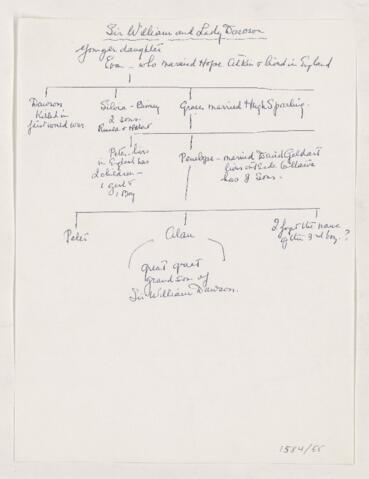 Sir William and Lady Dawson
Younger daughter
Eva - who married Hope Atkin & lived in England
Dawson
Killed in
first world war
Silvia - Birney
2 sons
Grace, married Hugh Sparling.
Peter lives
in England has
2 children -
1 girl &
1 Boy
Penelope - married David Geldart
lives outside Ottawa
has 3 Sons.
Peter
Alan
I forget the name
of the 3rd boy.?
Great great
grandson of
Sir William Dawson.
1584/65